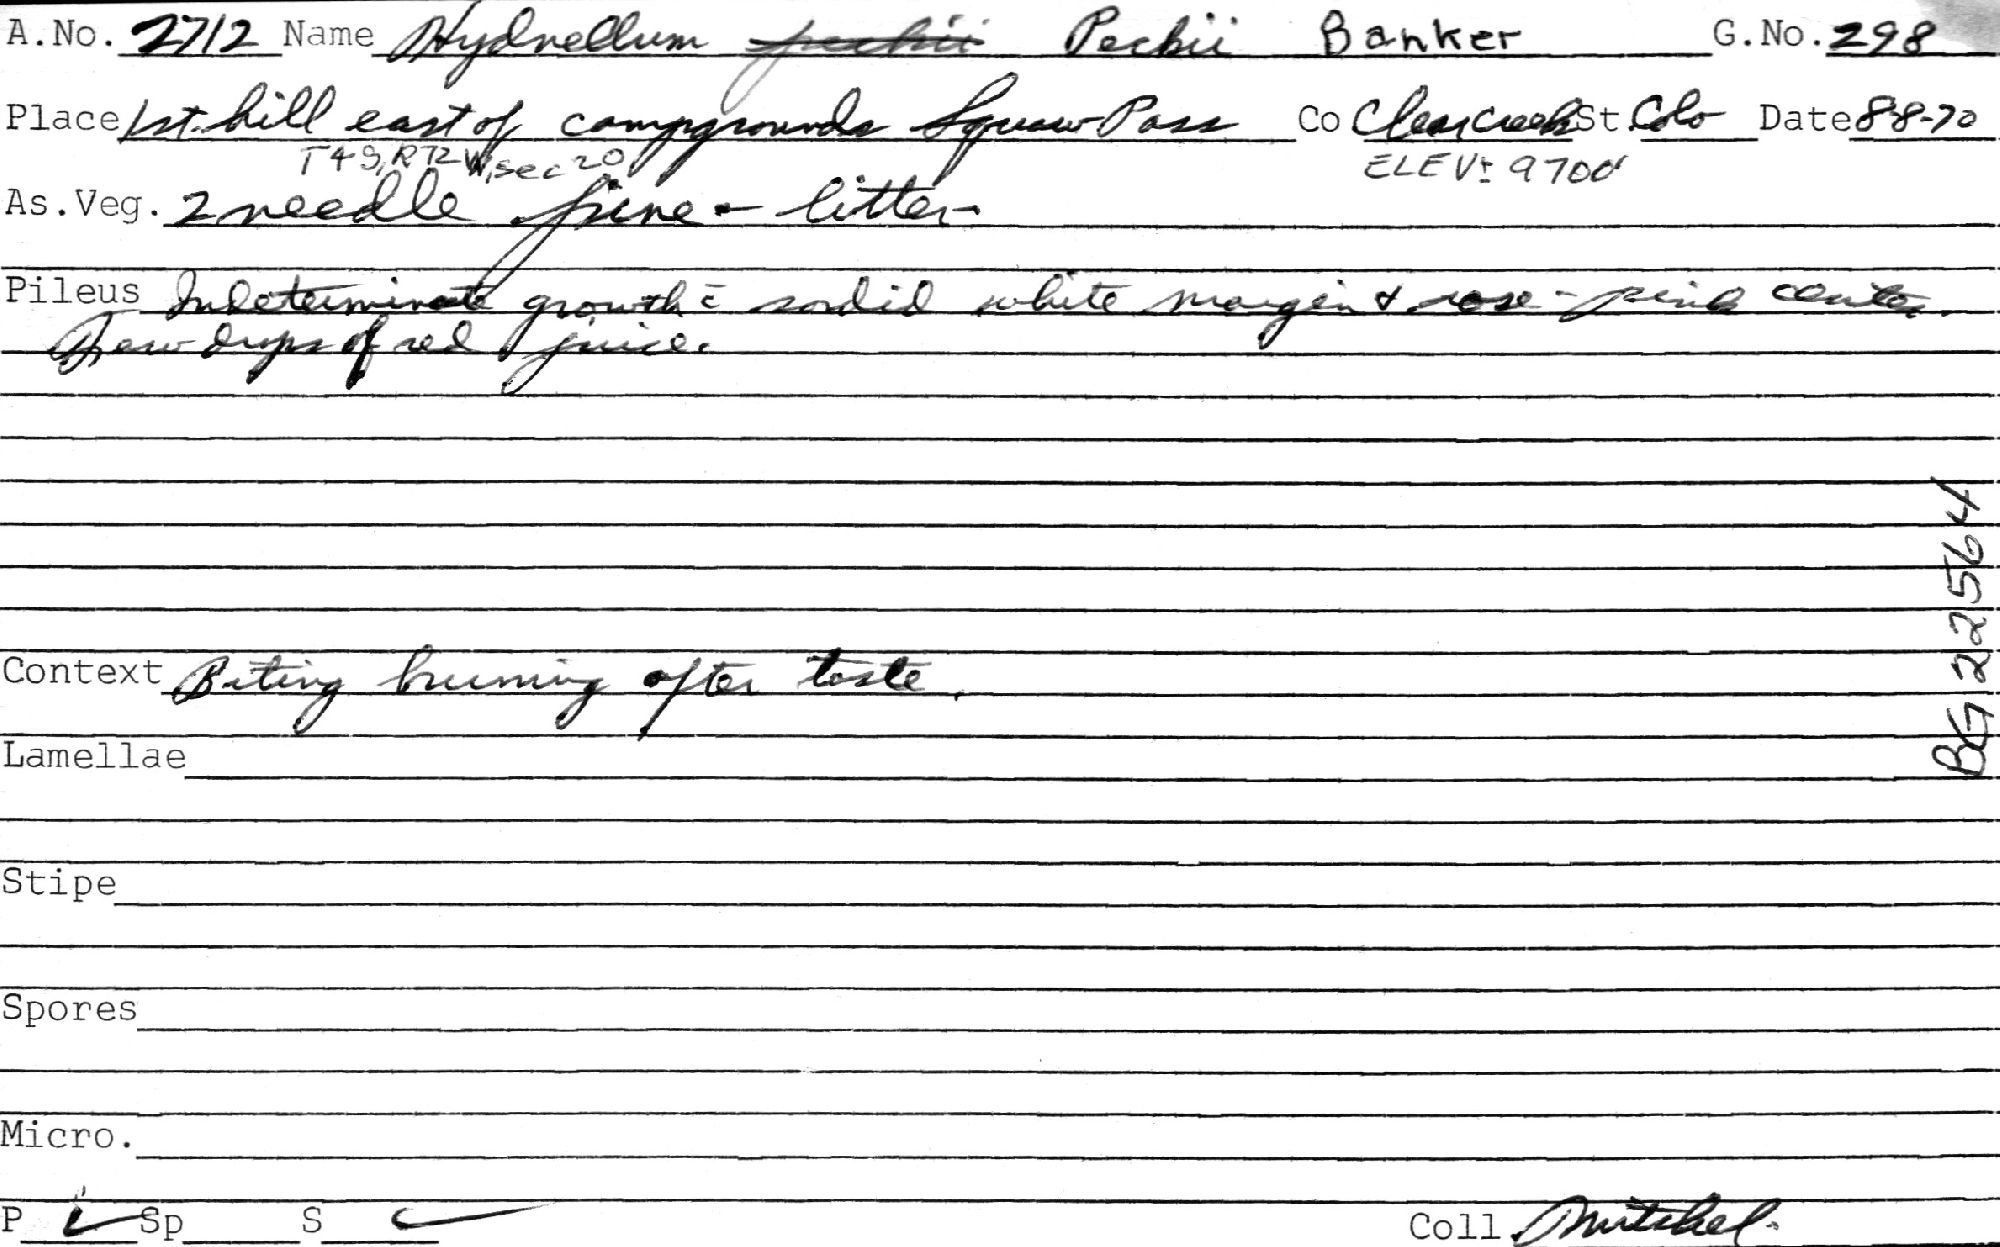 A.No. 2712 Name Hydnellum peckii Peckii Banker G.No. 298
Place 1st. hill east of campgrounds Squaw Pass Co Clear Creek St. Colo Date 8-8-70
T4S, R72W, sec 20 ELEV: 9700'
As.Veg. 2 needle pine - litter
Pileus Indeterminate growth c̄ sordid white margin & rose-pink center.
Few drops of red juice.
Context Biting burning after taste.
Lamellae
Stipe
Spores
Micro.
P ✓ Sp S ✓ Coll Mitchel.
BG 22564